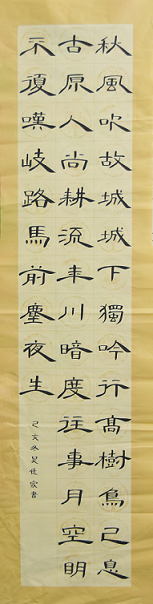 秋風吹故城城下獨吟行高樹鳥已息
古原人尚耕流年川暗度往事月空明
不復嘆岐路馬前塵夜生
己亥冬吳書